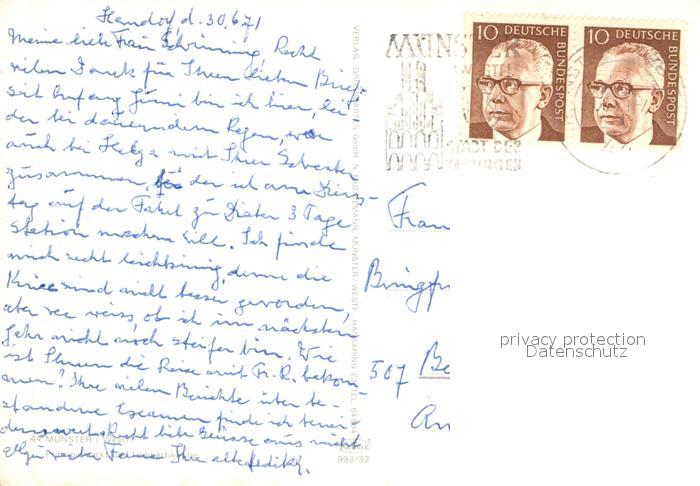 Handorf d. 30.6.71
Meine liebe Frau Schwinning, Recht
vielen Dank für Ihren lieben Brief.
seit Anfang Juni bin ich hier, lei-
der bei dauerndem Regen, war
auch bei Helga mit Ihrer Schwester
zusammen, bei der ich am Diens-
tag auf der Fahrt zu Dieter 3 Tage
Station machen will. Ich finde
mich recht leichtsinnig, denn die
Kniee sind nicht besser geworden,
aber wer weiss, ob ich im nächsten
Jahr nicht noch steifer bin. Wie
ist Ihnen die Reise mit Fr. R. bekom-
men? Ihre vielen Berichte über be-
standene Examen finde ich benei-
denswert. Recht liebe Grüsse aus nicht
allzu weiter Ferne Ihre
44 MÜNSTER / Westf.
993/32
VERLAG MÜNSTER/WESTF.
10 DEUTSCHE BUNDESPOST
10 DEUTSCHE BUNDESPOST
MÜNSTER
STADT DER
TAGUNGEN
Frau
507
An
privacy protection
Datenschutz